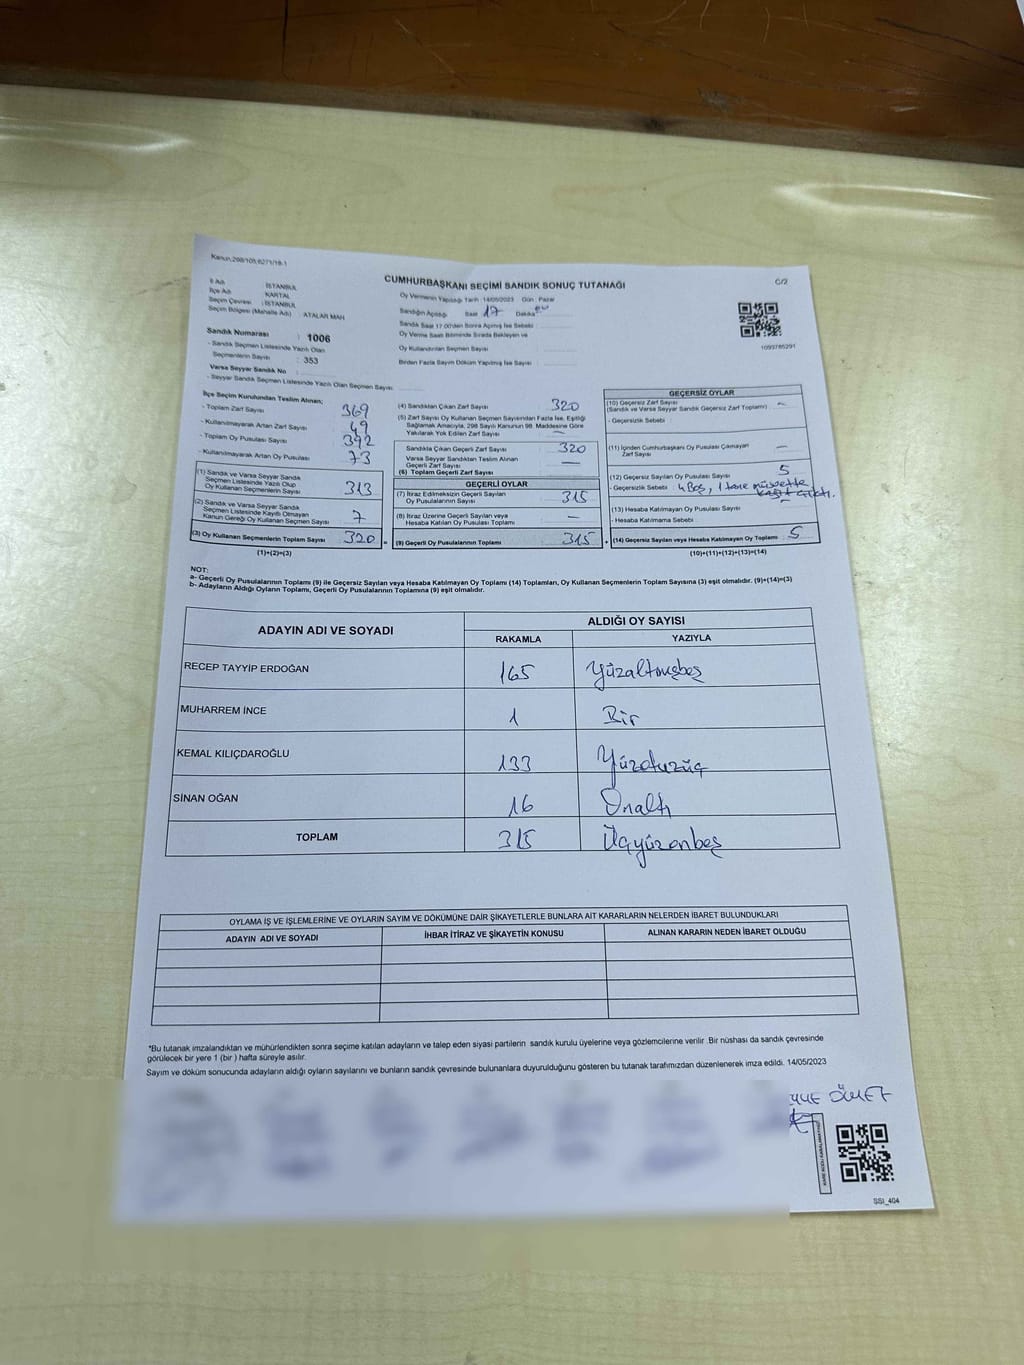 Kanun:298/105,6271/18-1
C/2
CUMHURBAŞKANI SEÇİMİ SANDIK SONUÇ TUTANAĞI
İl Adı : İSTANBUL
İlçe Adı : KARTAL
Seçim Çevresi : İSTANBUL
Seçim Bölgesi (Mahalle Adı) : ATALAR MAH
Sandık Numarası : 1006
- Sandık Seçmen Listesinde Yazılı Olan
Seçmenlerin Sayısı : 353
Varsa Seyyar Sandık No :
- Seyyar Sandık Seçmen Listesinde Yazılı Olan Seçmen Sayısı
Oy Vermenin Yapıldığı Tarih : 14/05/2023 Gün : Pazar
Sandığın Açıldığı Saat 17 Dakika
Sandık Saat 17.00'den Sonra Açılmış İse Sebebi
Oy Verme Saati Bitiminde Sırada Bekleyen ve
Oy Kullandırılan Seçmen Sayısı
Birden Fazla Sayım Döküm Yapılmış İse Sayısı
1093785291
İlçe Seçim Kurulundan Teslim Alınan;
- Toplam Zarf Sayısı 369
- Kullanılmayarak Artan Zarf Sayısı 49
- Toplam Oy Pusulası Sayısı 392
- Kullanılmayarak Artan Oy Pusulası 73
(1) Sandık ve Varsa Seyyar Sandık
Seçmen Listesinde Yazılı Olup
Oy Kullanan Seçmenlerin Sayısı 313
(2) Sandık ve Varsa Seyyar Sandık
Seçmen Listesinde Kayıtlı Olmayan
Kanun Gereği Oy Kullanan Seçmen Sayısı 7
(3) Oy Kullanan Seçmenlerin Toplam Sayısı 320
(1)+(2)=(3)
(4) Sandıktan Çıkan Zarf Sayısı 320
(5) Zarf Sayısı Oy Kullanan Seçmen Sayısından Fazla İse, Eşitliği
Sağlamak Amacıyla, 298 Sayılı Kanunun 98. Maddesine Göre
Yakılarak Yok Edilen Zarf Sayısı —
Sandıkta Çıkan Geçerli Zarf Sayısı 320
Varsa Seyyar Sandıktan Teslim Alınan
Geçerli Zarf Sayısı —
(6) Toplam Geçerli Zarf Sayısı
GEÇERLİ OYLAR
(7) İtiraz Edilmeksizin Geçerli Sayılan
Oy Pusulalarının Sayısı 315
(8) İtiraz Üzerine Geçerli Sayılan veya
Hesaba Katılan Oy Pusulası Toplamı —
(9) Geçerli Oy Pusulalarının Toplamı 315
GEÇERSİZ OYLAR
(10) Geçersiz Zarf Sayısı
(Sandık ve Varsa Seyyar Sandık Geçersiz Zarf Toplamı) —
- Geçersizlik Sebebi
(11) İçinden Cumhurbaşkanı Oy Pusulası Çıkmayan
Zarf Sayısı —
(12) Geçersiz Sayılan Oy Pusulası Sayısı 5
- Geçersizlik Sebebi 4 Boş, 1 tane
(13) Hesaba Katılmayan Oy Pusulası Sayısı —
- Hesaba Katılmama Sebebi
(14) Geçersiz Sayılan veya Hesaba Katılmayan Oy Toplamı 5
(10)+(11)+(12)+(13)=(14)
NOT:
a- Geçerli Oy Pusulalarının Toplamı (9) ile Geçersiz Sayılan veya Hesaba Katılmayan Oy Toplamı (14) Toplamları, Oy Kullanan Seçmenlerin Toplam Sayısına (3) eşit olmalıdır. (9)+(14)=(3)
b- Adayların Aldığı Oyların Toplamı, Geçerli Oy Pusulalarının Toplamına (9) eşit olmalıdır.
ADAYIN ADI VE SOYADI
ALDIĞI OY SAYISI
RAKAMLA YAZIYLA
RECEP TAYYİP ERDOĞAN 165 Yüzaltmışbeş
MUHARREM İNCE 1 Bir
KEMAL KILIÇDAROĞLU 133 Yüzotuzüç
SİNAN OĞAN 16 Onaltı
TOPLAM 315 Üçyüzonbeş
OYLAMA İŞ VE İŞLEMLERİNE VE OYLARIN SAYIM VE DÖKÜMÜNE DAİR ŞİKAYETLERLE BUNLARA AİT KARARLARIN NELERDEN İBARET BULUNDUKLARI
ADAYIN ADI VE SOYADI İHBAR İTİRAZ VE ŞİKAYETİN KONUSU ALINAN KARARIN NEDEN İBARET OLDUĞU
*Bu tutanak imzalandıktan ve mühürlendikten sonra seçime katılan adayların ve talep eden siyasi partilerin sandık kurulu üyelerine veya gözlemcilerine verilir .Bir nüshası da sandık çevresinde
görülecek bir yere 1 (bir ) hafta süreyle asılır.
Sayım ve döküm sonucunda adayların aldığı oyların sayılarını ve bunların sandık çevresinde bulunanlara duyurulduğunu gösteren bu tutanak tarafımızdan düzenlenerek imza edildi. 14/05/2023
SSI_404